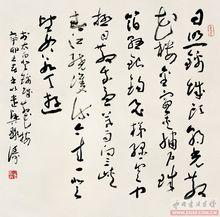 日照錦城頭朝光散
花樓金窗夾繡戶珠
箔懸銀鉤飛梯綠雲中
極目散我憂暮雨向三峽
春江繞雙流今來一登
望如上九天遊
李太白登錦城散花樓